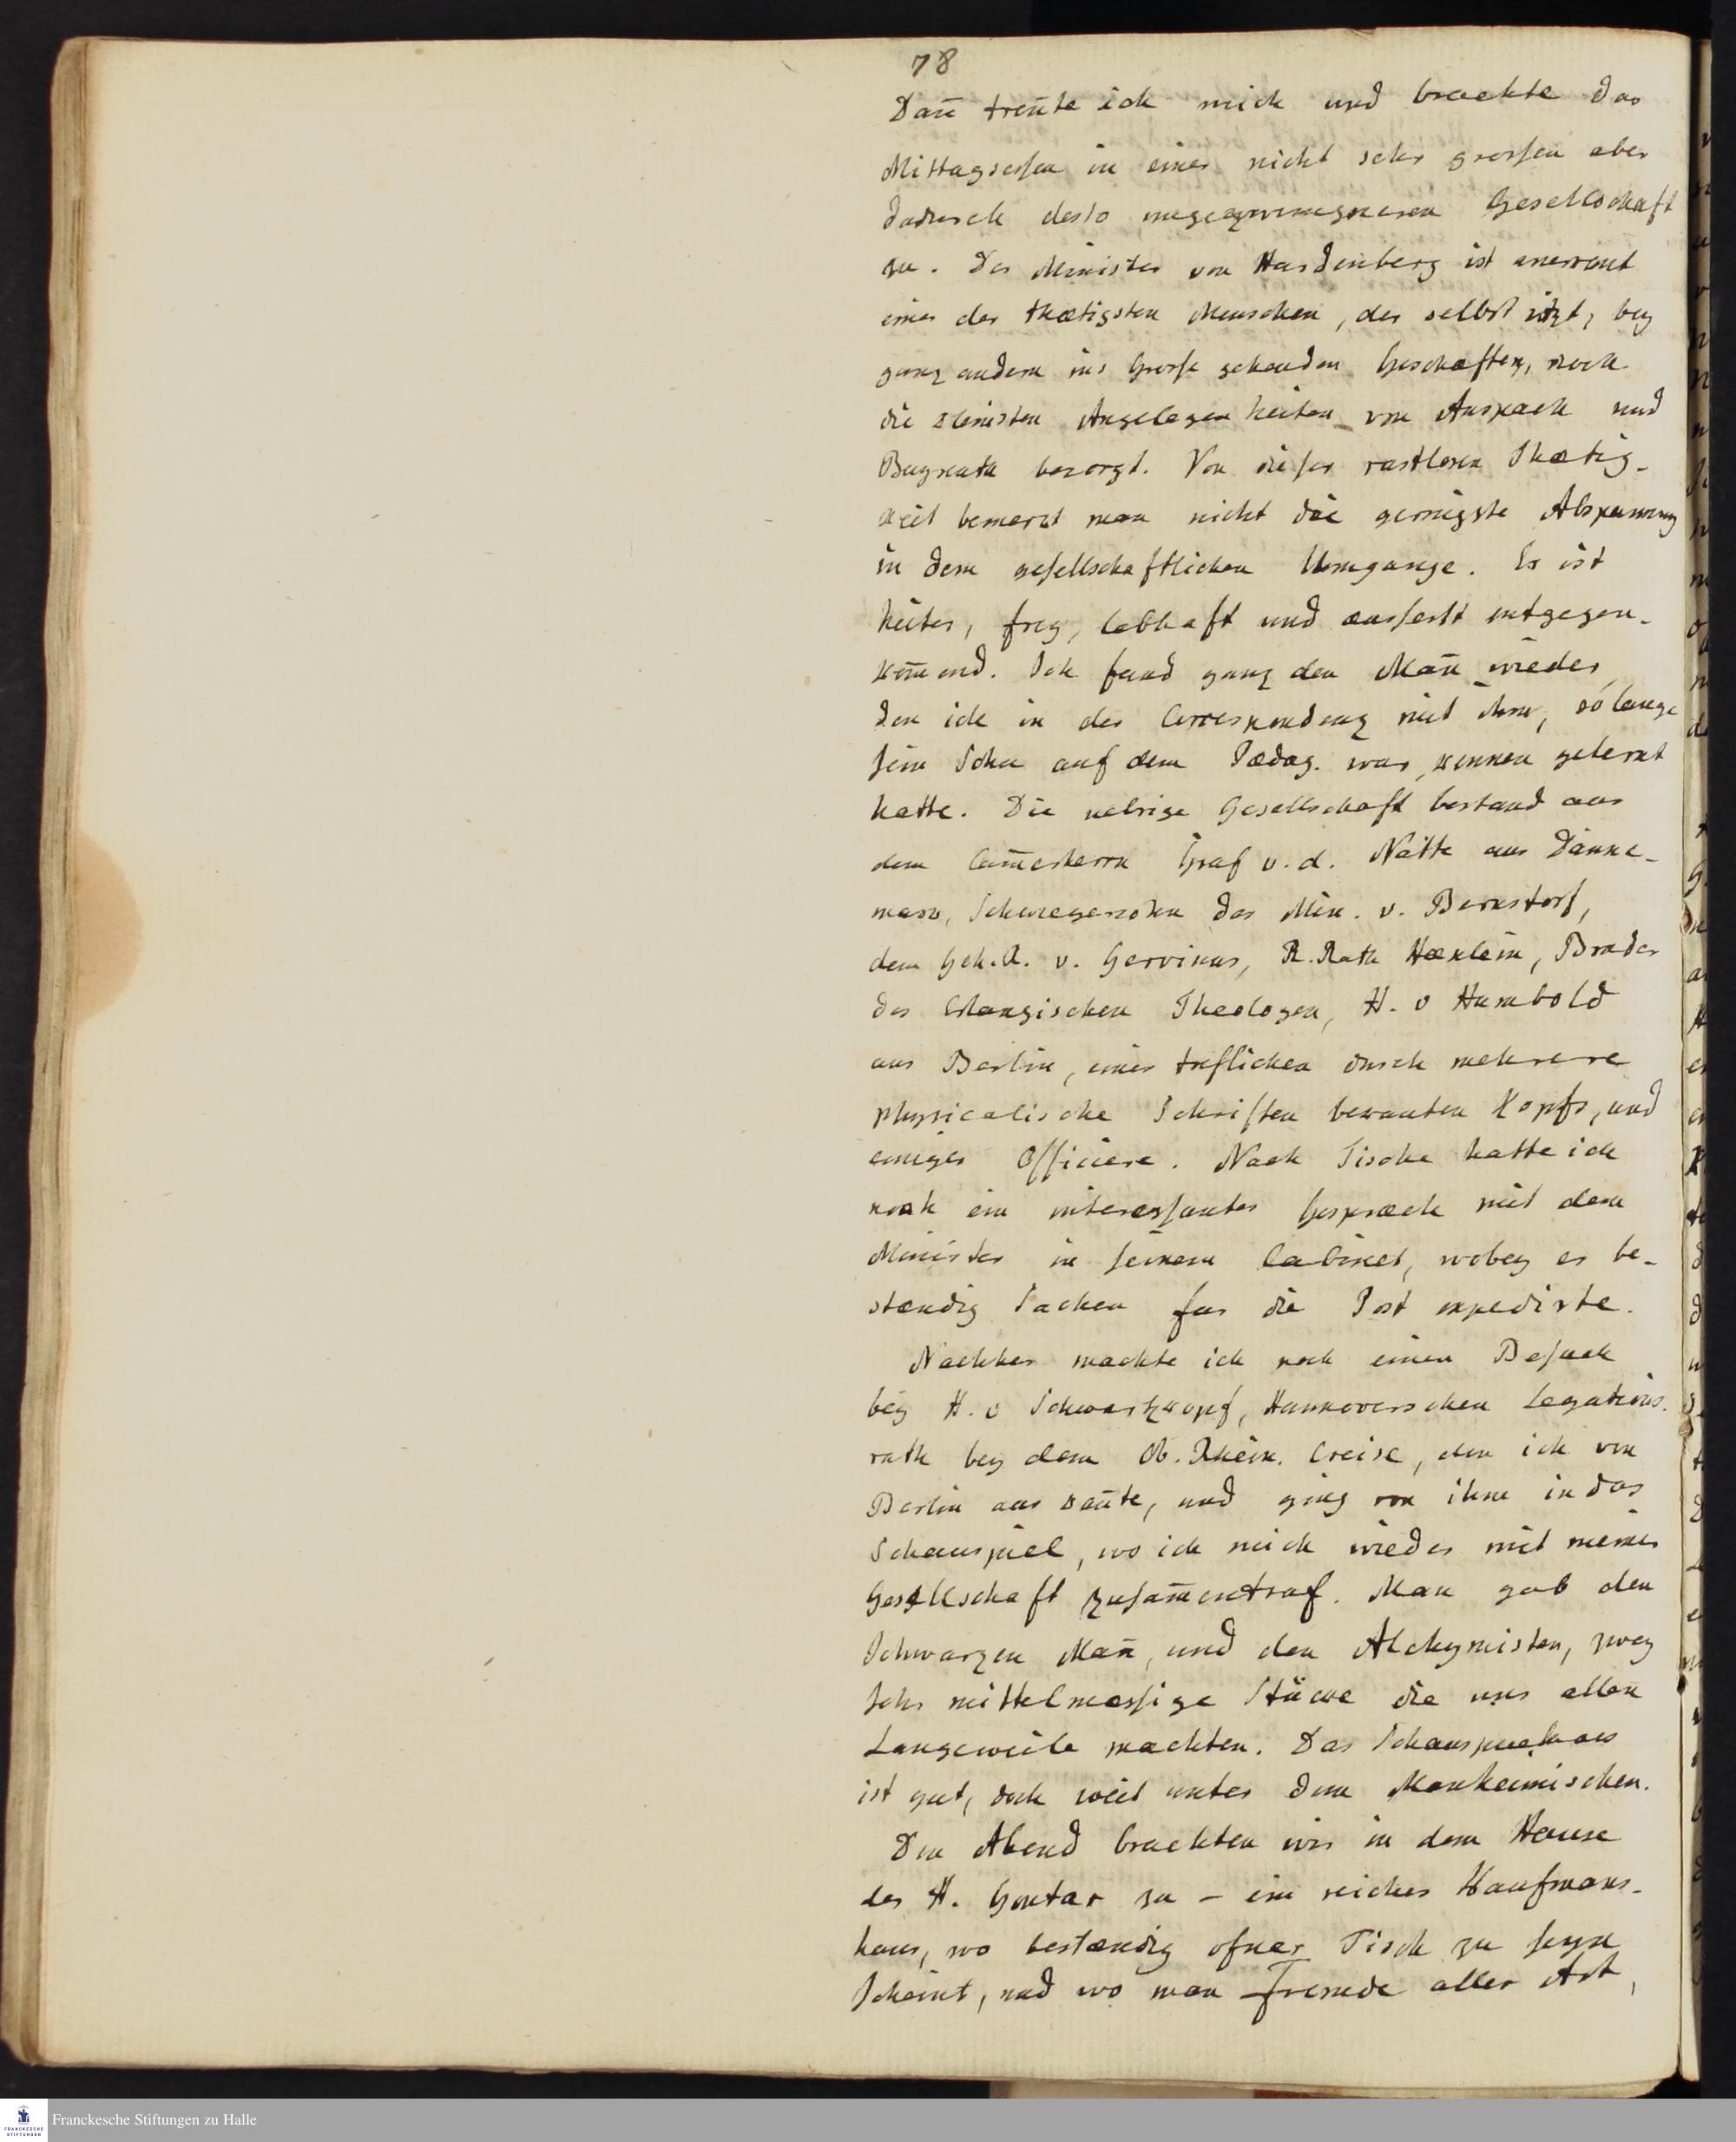 78
Dan̄ tren̄te ich mich und brachte das
Mittagsessen in einer nicht sehr grossen aber
dadurch desto ungezwungneren Gesellschaft
zu. Der Minister von Hardenberg ist anerkant
einer der thætigsten Menschen, der selbst itzt, bey
ganz andern ins Grosse gehenden Geschæften, noch
die kleinsten Angelegenheiten von Anspach und
Bayreuth besorgt. Von dieser rastlosen Thætig-
keit bemerkt man nicht die geringste Abspannung
in dem gesellschaftlichen Umgange. Er ist
heiter, frey, lebhaft und æusserst entgegen-
kom̄end. Ich fand ganz den Man̄ wieder
den ich in der Correspondenz mit ihm, so lange
sein Sohn auf dem Pædag. war, kennen gelernt
hatte. Die uebrige Gesellschaft bestand aus
dem Cam̄erherrn Graf v. d. Nätte aus Dänne-
mark, Schwiegersohn des Min. v. Bernstorf,
dem Geh. R. v. Gervinus, R. Rath Hænlein, Bruder
des Erlangischen Theologen, H. v Humbold
aus Berlin, eines treflichen durch mehrere
physicalische Schriften bekanten Kopfs, und
einiger Officiere. Nach Tische hatte ich
noch ein interessantes Gespræch mit dem
Minister in seinem Cabinet, wobey er be-
stændig Sachen fur die Post expedirte.
Nachher machte ich noch einen Besuch
bey H. v Schwartzkopf, Hannoverschen Legations-
rath bey dem Ob. Rhein. Creise, den ich von
Berlin aus kan̄te, und ging von ihm in das
Schauspiel, wo ich mich wieder mit meiner
Gesellschaft zusam̄entraf. Man gab den
Schwarzen Man̄, und den Alchymisten, zwey
sehr mittelmæssige Stücke die uns allen
Langeweile machten. Das Schauspielhaus
ist gut, doch weit unter dem Manheimischen.
Den Abend brachten wir in dem Hause
des H. Gontar zu – ein reiches Kaufmans-
haus, wo bestændig ofner Tisch zu seyn
scheint, und wo man Fremde aller Art,
Franckesche Stiftungen zu Halle
FRANCKESCHE
STIFTUNGEN